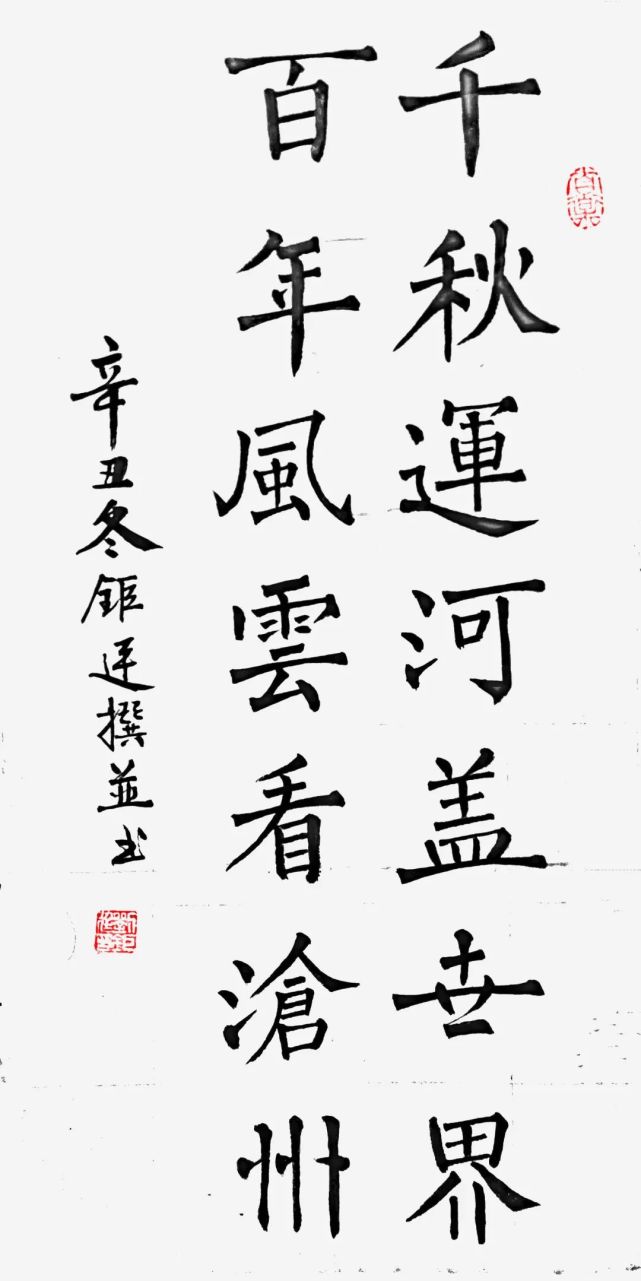 千秋運河盖世界
百年風雲看滄州
辛丑冬鉅迋撰並书